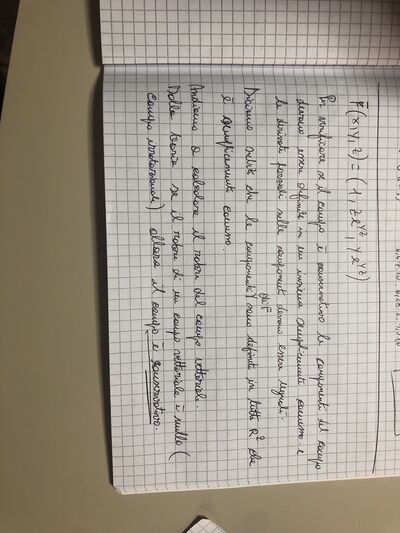 F̄(x,y,z) = (1, ze^yz, ye^yz)
Per verificare se il campo è conservativo le componenti del campo
devono essere definite in un insieme semplicemente connesso e
le derivate parziali nelle componenti devono essere uguali.
Diciamo subito che le componenti di F̄ sono definite in tutto R² che
è semplicemente connesso.
Andiamo a calcolare il rotore del campo vettoriale.
Dalla teoria se il rotore di un campo vettoriale è nullo (
campo irrotazionale) allora il campo è conservativo.